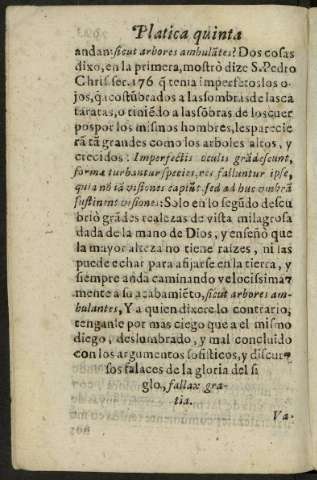 Platica quinta
andan: sicut arbores ambulãtes? Dos cosas
dixo, en la primera, mostrò dize S. Pedro
Chris. ser. 176 q̃ tenia imperfetos los o-
jos, q̃ acostũbrados a las sombras de las ca
taratas, o tiniẽdo a las sõbras de los cuer
pos por los mismos hombres, les parecie
rã tã grandes como los arboles altos, y
crecidos: Imperfectis oculis grãdescunt,
forma turbantur species, res falluntur ipse,
quia nõ iã visiones capiũt, sed ad huc umbrã
sustinent visionei: Solo en lo segũdo descu
briò grãdes realezas de vista milagrosa
dada de la mano de Dios, y enseñò que
la mayor alteza no tiene raízes, ni las
puede echar para afijarse en la tierra, y
siempre anda caminando velocissima-
mente a su acabamiẽto, sicut arbores am-
bulantes, Y a quien dixere lo contrario,
tenganle por mas ciego que a el mismo
diego, deslumbrado, y mal concluido
con los argumentos sofisticos, y discur-
sos falaces de la gloria del si
glo, fallax gra-
tia.
Va-